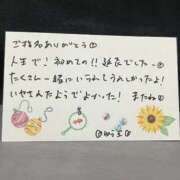 ご指名ありがとう
人生で!初めての!!延長でした…
たくさん一緒にいられてうれしかったよ!
いやせたようでよかった! またね